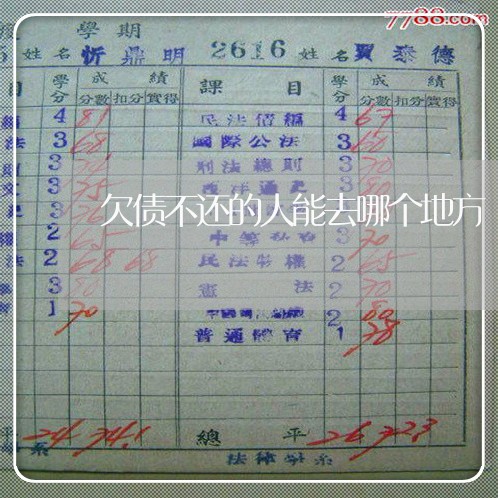 7788.com
學期
姓名 忻鼎明 2616 姓名 賈泰德
目 學分 成績 課目 學分 成績
分數 扣分 實得 分數 扣分 實得
4 81 民法債編 4 67
法 3 68 國際公法 3 60
3 刑法總則 3 70
3 75 西洋通史 3 80
欠债不还的人能去哪个地方
3 76 3
2 65 中等 3 70
法 2 68 68 民法物權 2 65
3 80 憲法 2 70
1 70 2 80
普通體育 1 78
平 24 74.1 總平 26 72.3
系 法律學系